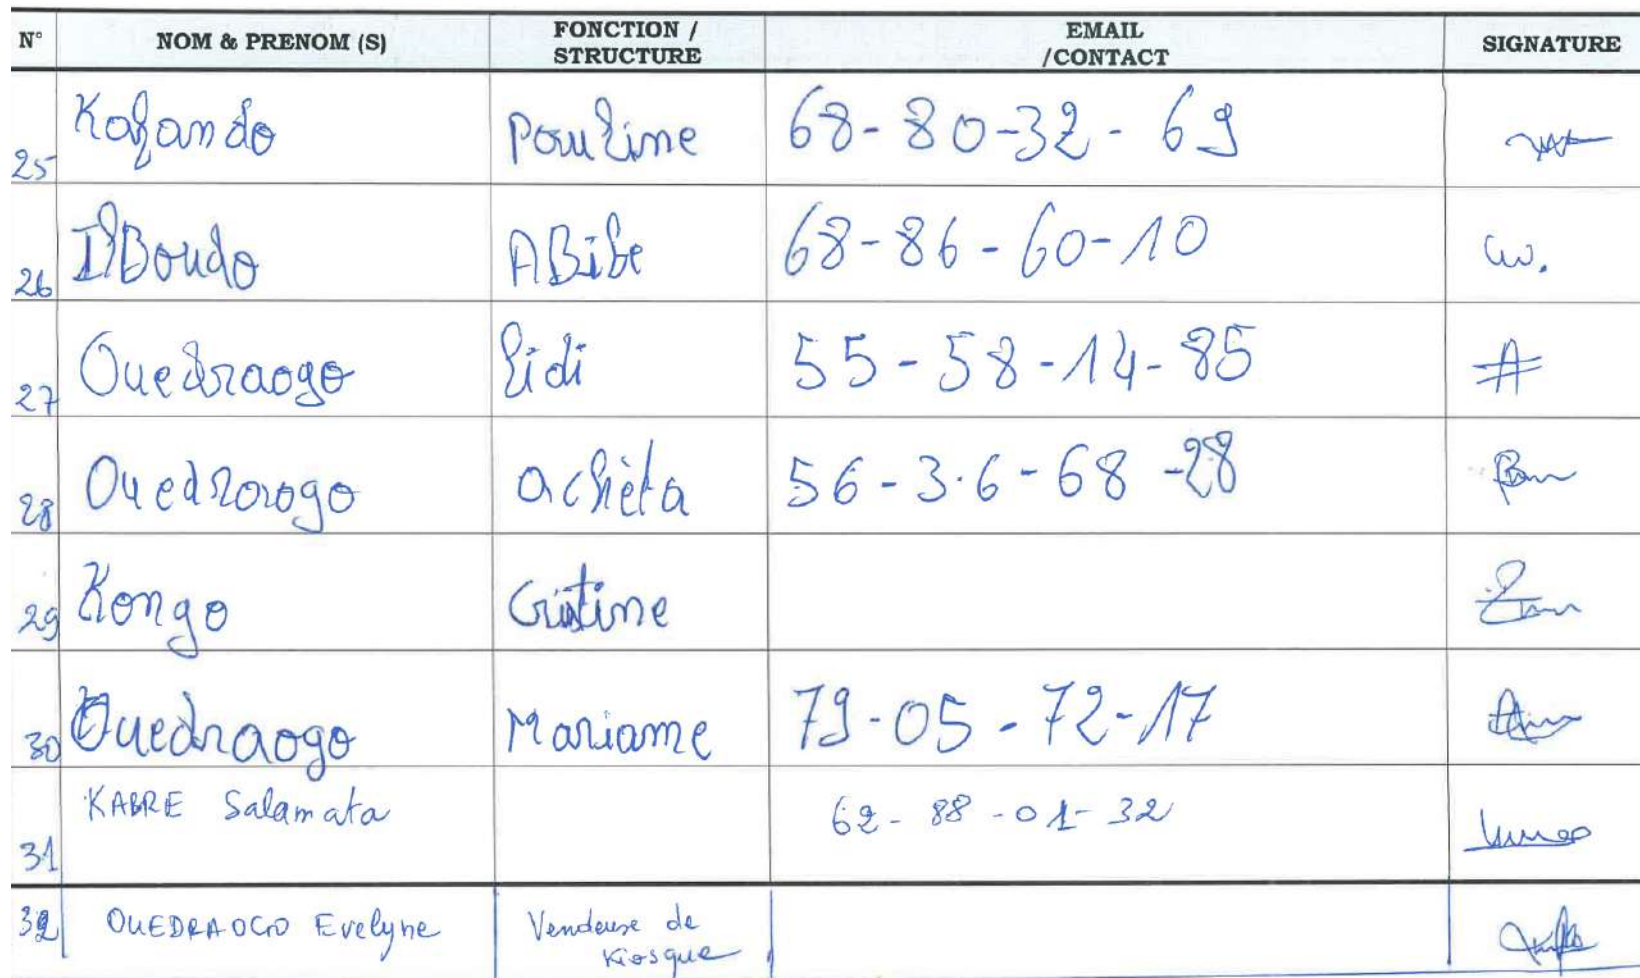 N° NOM & PRENOM (S) FONCTION / STRUCTURE EMAIL /CONTACT SIGNATURE
25 Kafando Pouline 68-80-32-69
26 IlBoudo ABibe 68-86-60-10
27 Ouedraogo Lidi 55-58-14-85
28 Ouedrorogo achèta 56-3.6-68-28
29 Kongo Cristine
30 Ouedraogo Mariame 79-05-72-17
31 KABRE Salamata 62-88-01-32
32 OUEDRAOGO Evelyne Vendeuse de
Kiosque